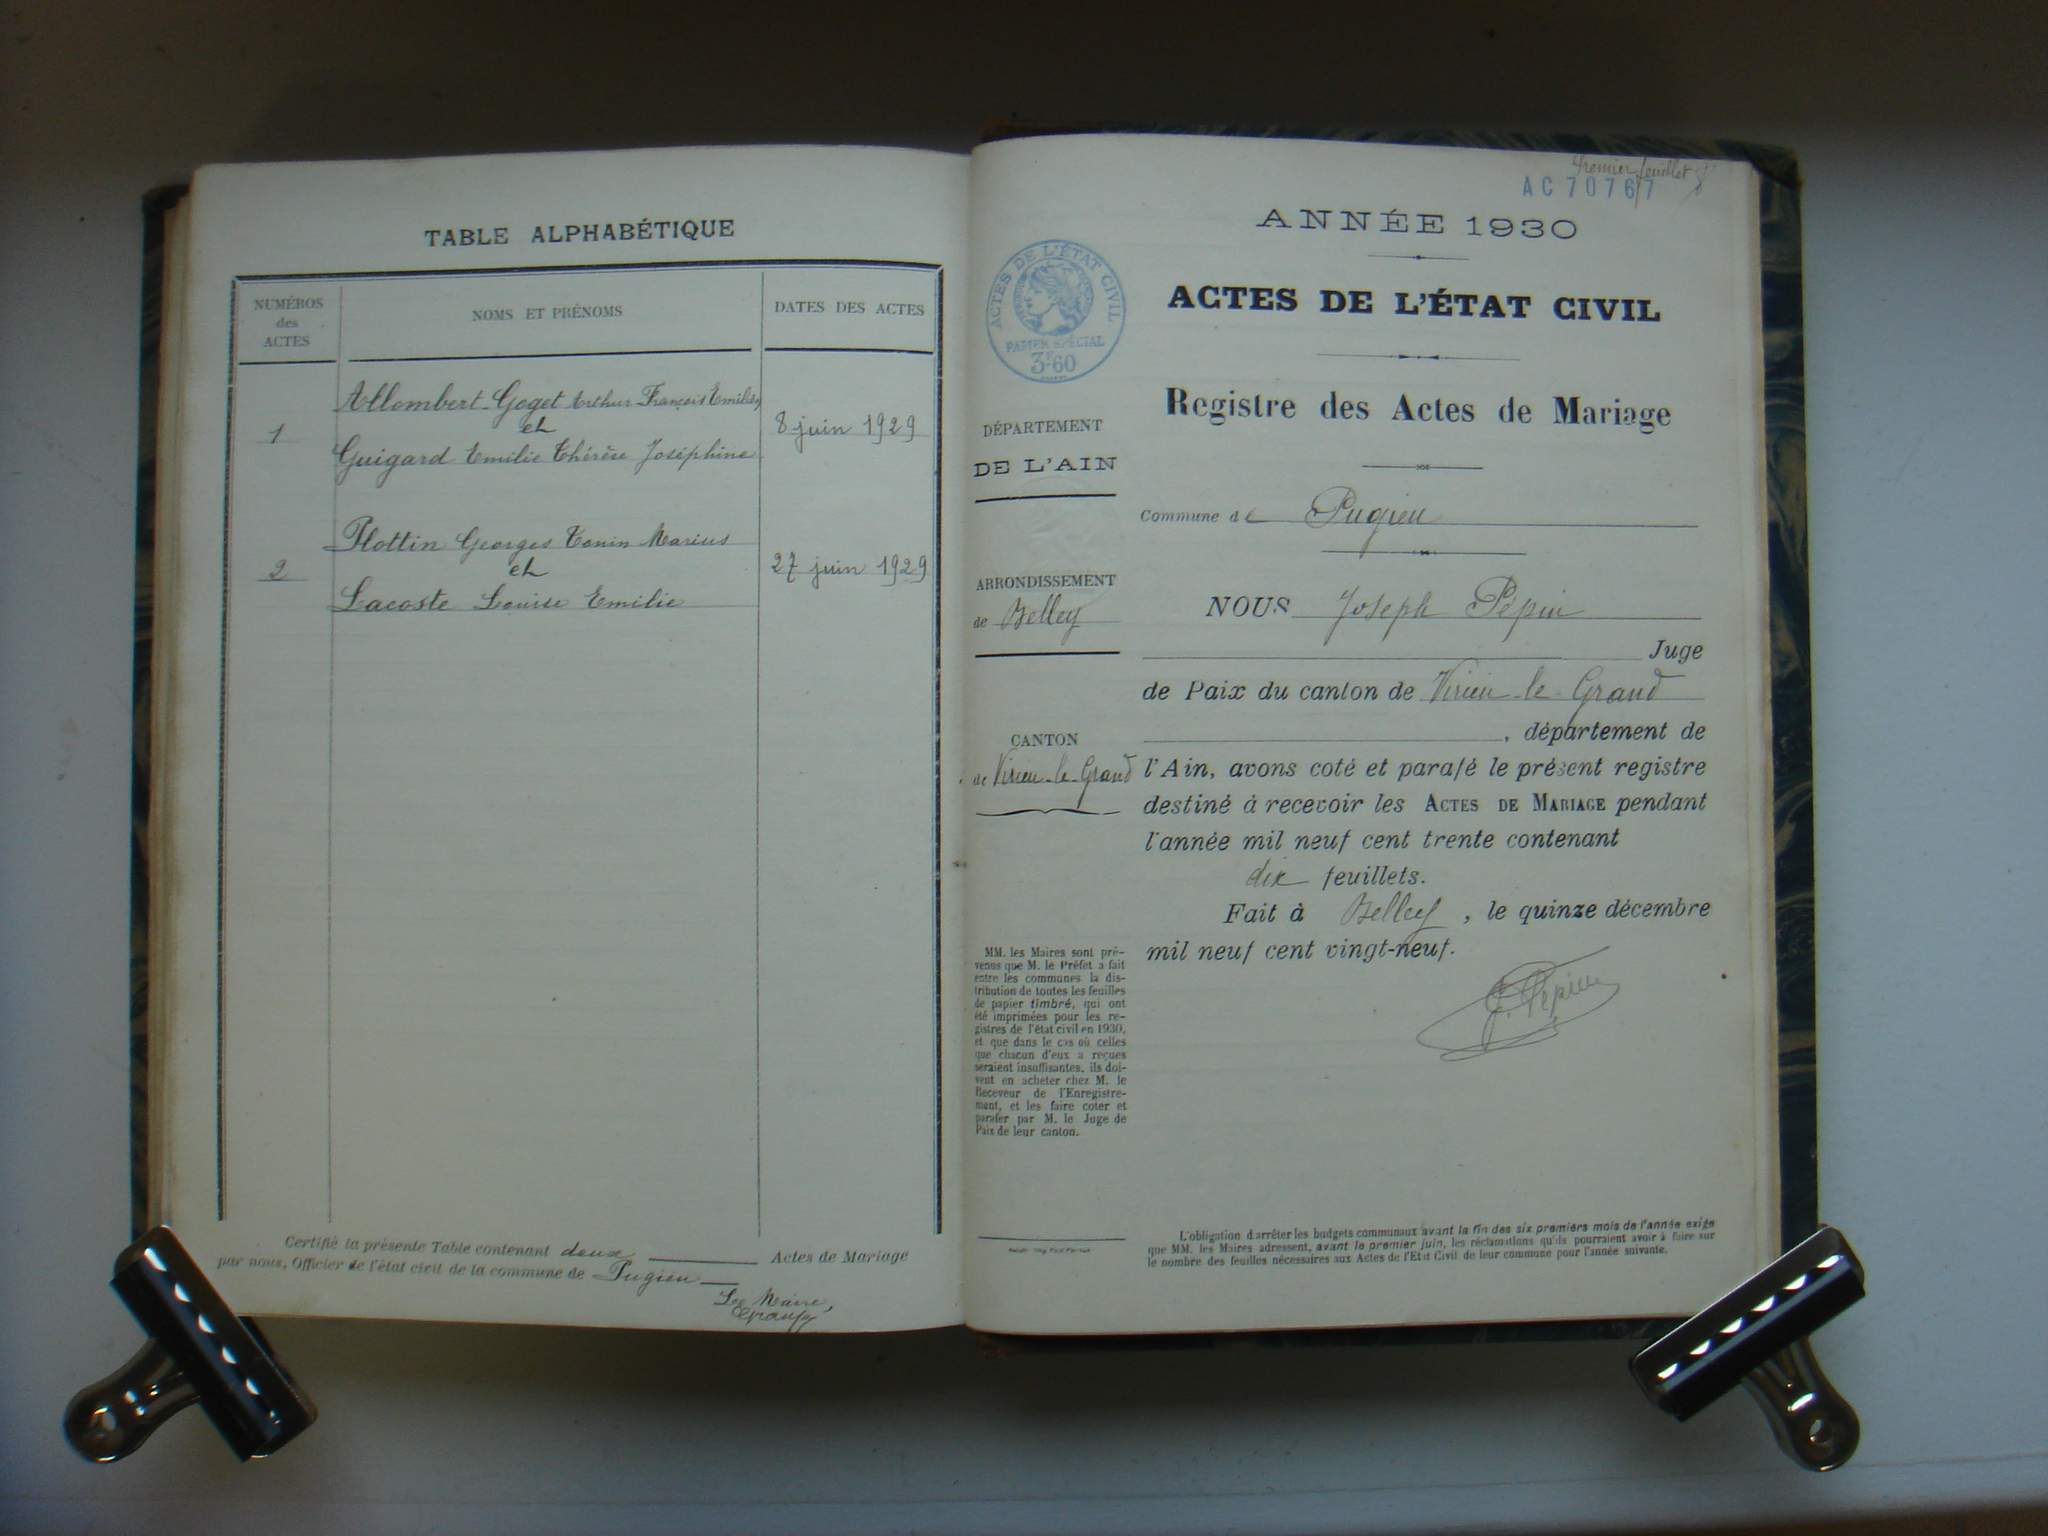 TABLE ALPHABÉTIQUE
NUMÉROS
des
ACTES
NOMS ET PRÉNOMS
DATES DES ACTES
Allombert-Goget Arthur François Emilien
1
et
8 juin 1929
Guigard Emilie Thérèse Joséphine
Plottin Georges Tonin Marius
2
et
27 juin 1929
Lacoste Louise Emilie
Certifié la présente Table contenant deux Actes de Mariage
par nous, Officier de l'état civil de la commune de Pugieu
Le Maire,
Premier feuillet
AC 70767
ANNÉE 1930
ACTES DE L'ÉTAT CIVIL
ACTES DE L'ÉTAT CIVIL.
PAPIER SPÉCIAL
3F60
Registre des Actes de Mariage
DÉPARTEMENT
DE L'AIN
Commune de Pugieu
ARRONDISSEMENT
de Belley
CANTON
de Virieu-le-Grand
NOUS Joseph Pépin
Juge
de Paix du canton de Virieu-le-Grand
, département de
l'Ain, avons coté et parafé le présent registre
destiné à recevoir les ACTES DE MARIAGE pendant
l'année mil neuf cent trente contenant
dix feuillets.
Fait à Belley, le quinze décembre
mil neuf cent vingt-neuf.
J. Pépin
MM. les Maires sont pré-
venus que M. le Préfet a fait
entre les communes la dis-
tribution de toutes les feuilles
de papier timbré, qui ont
été imprimées pour les re-
gistres de l'état civil en 1930,
et que dans le cas où celles
que chacun d'eux a reçues
seraient insuffisantes, ils doi-
vent en acheter chez M. le
Receveur de l'Enregistre-
ment, et les faire coter et
parafer par M. le Juge de
Paix de leur canton.
L'obligation d'arrêter les budgets communaux avant la fin des six premiers mois de l'année exige
que MM. les Maires adressent, avant le premier juin, les réclamations qu'ils pourraient avoir à faire sur
le nombre des feuilles nécessaires aux Actes de l'Etat Civil de leur commune pour l'année suivante.